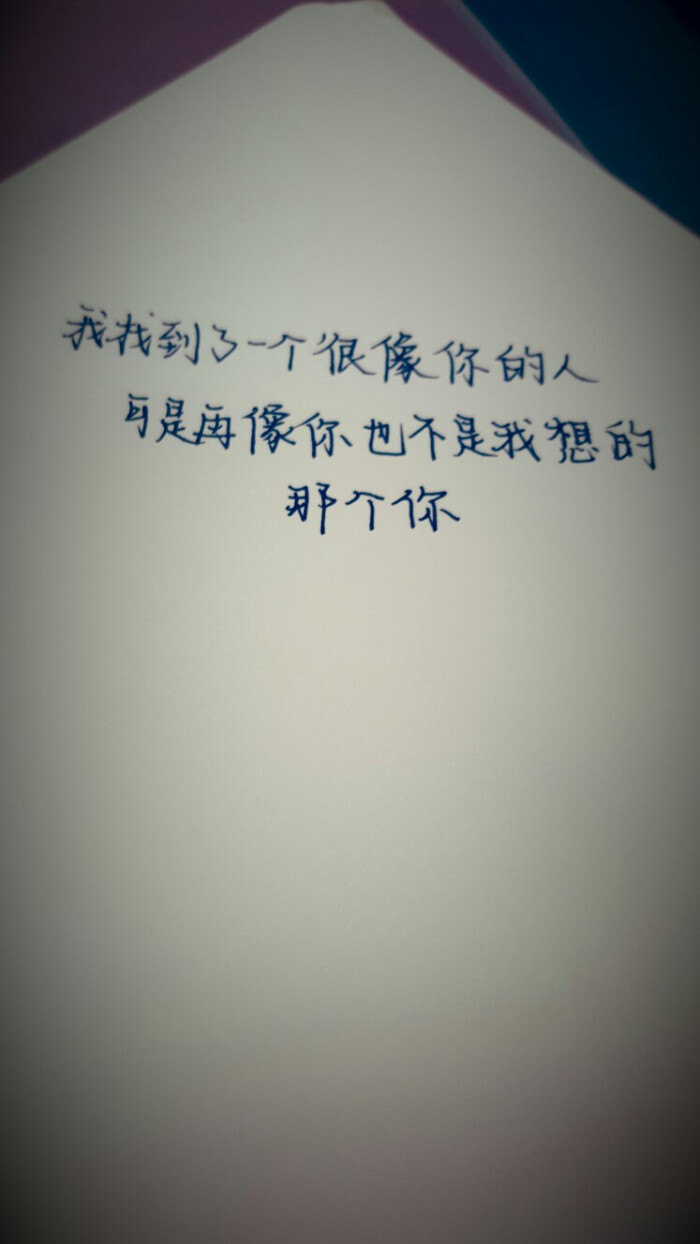 我找到了一个很像你的人
可是再像你也不是我想的
那个你